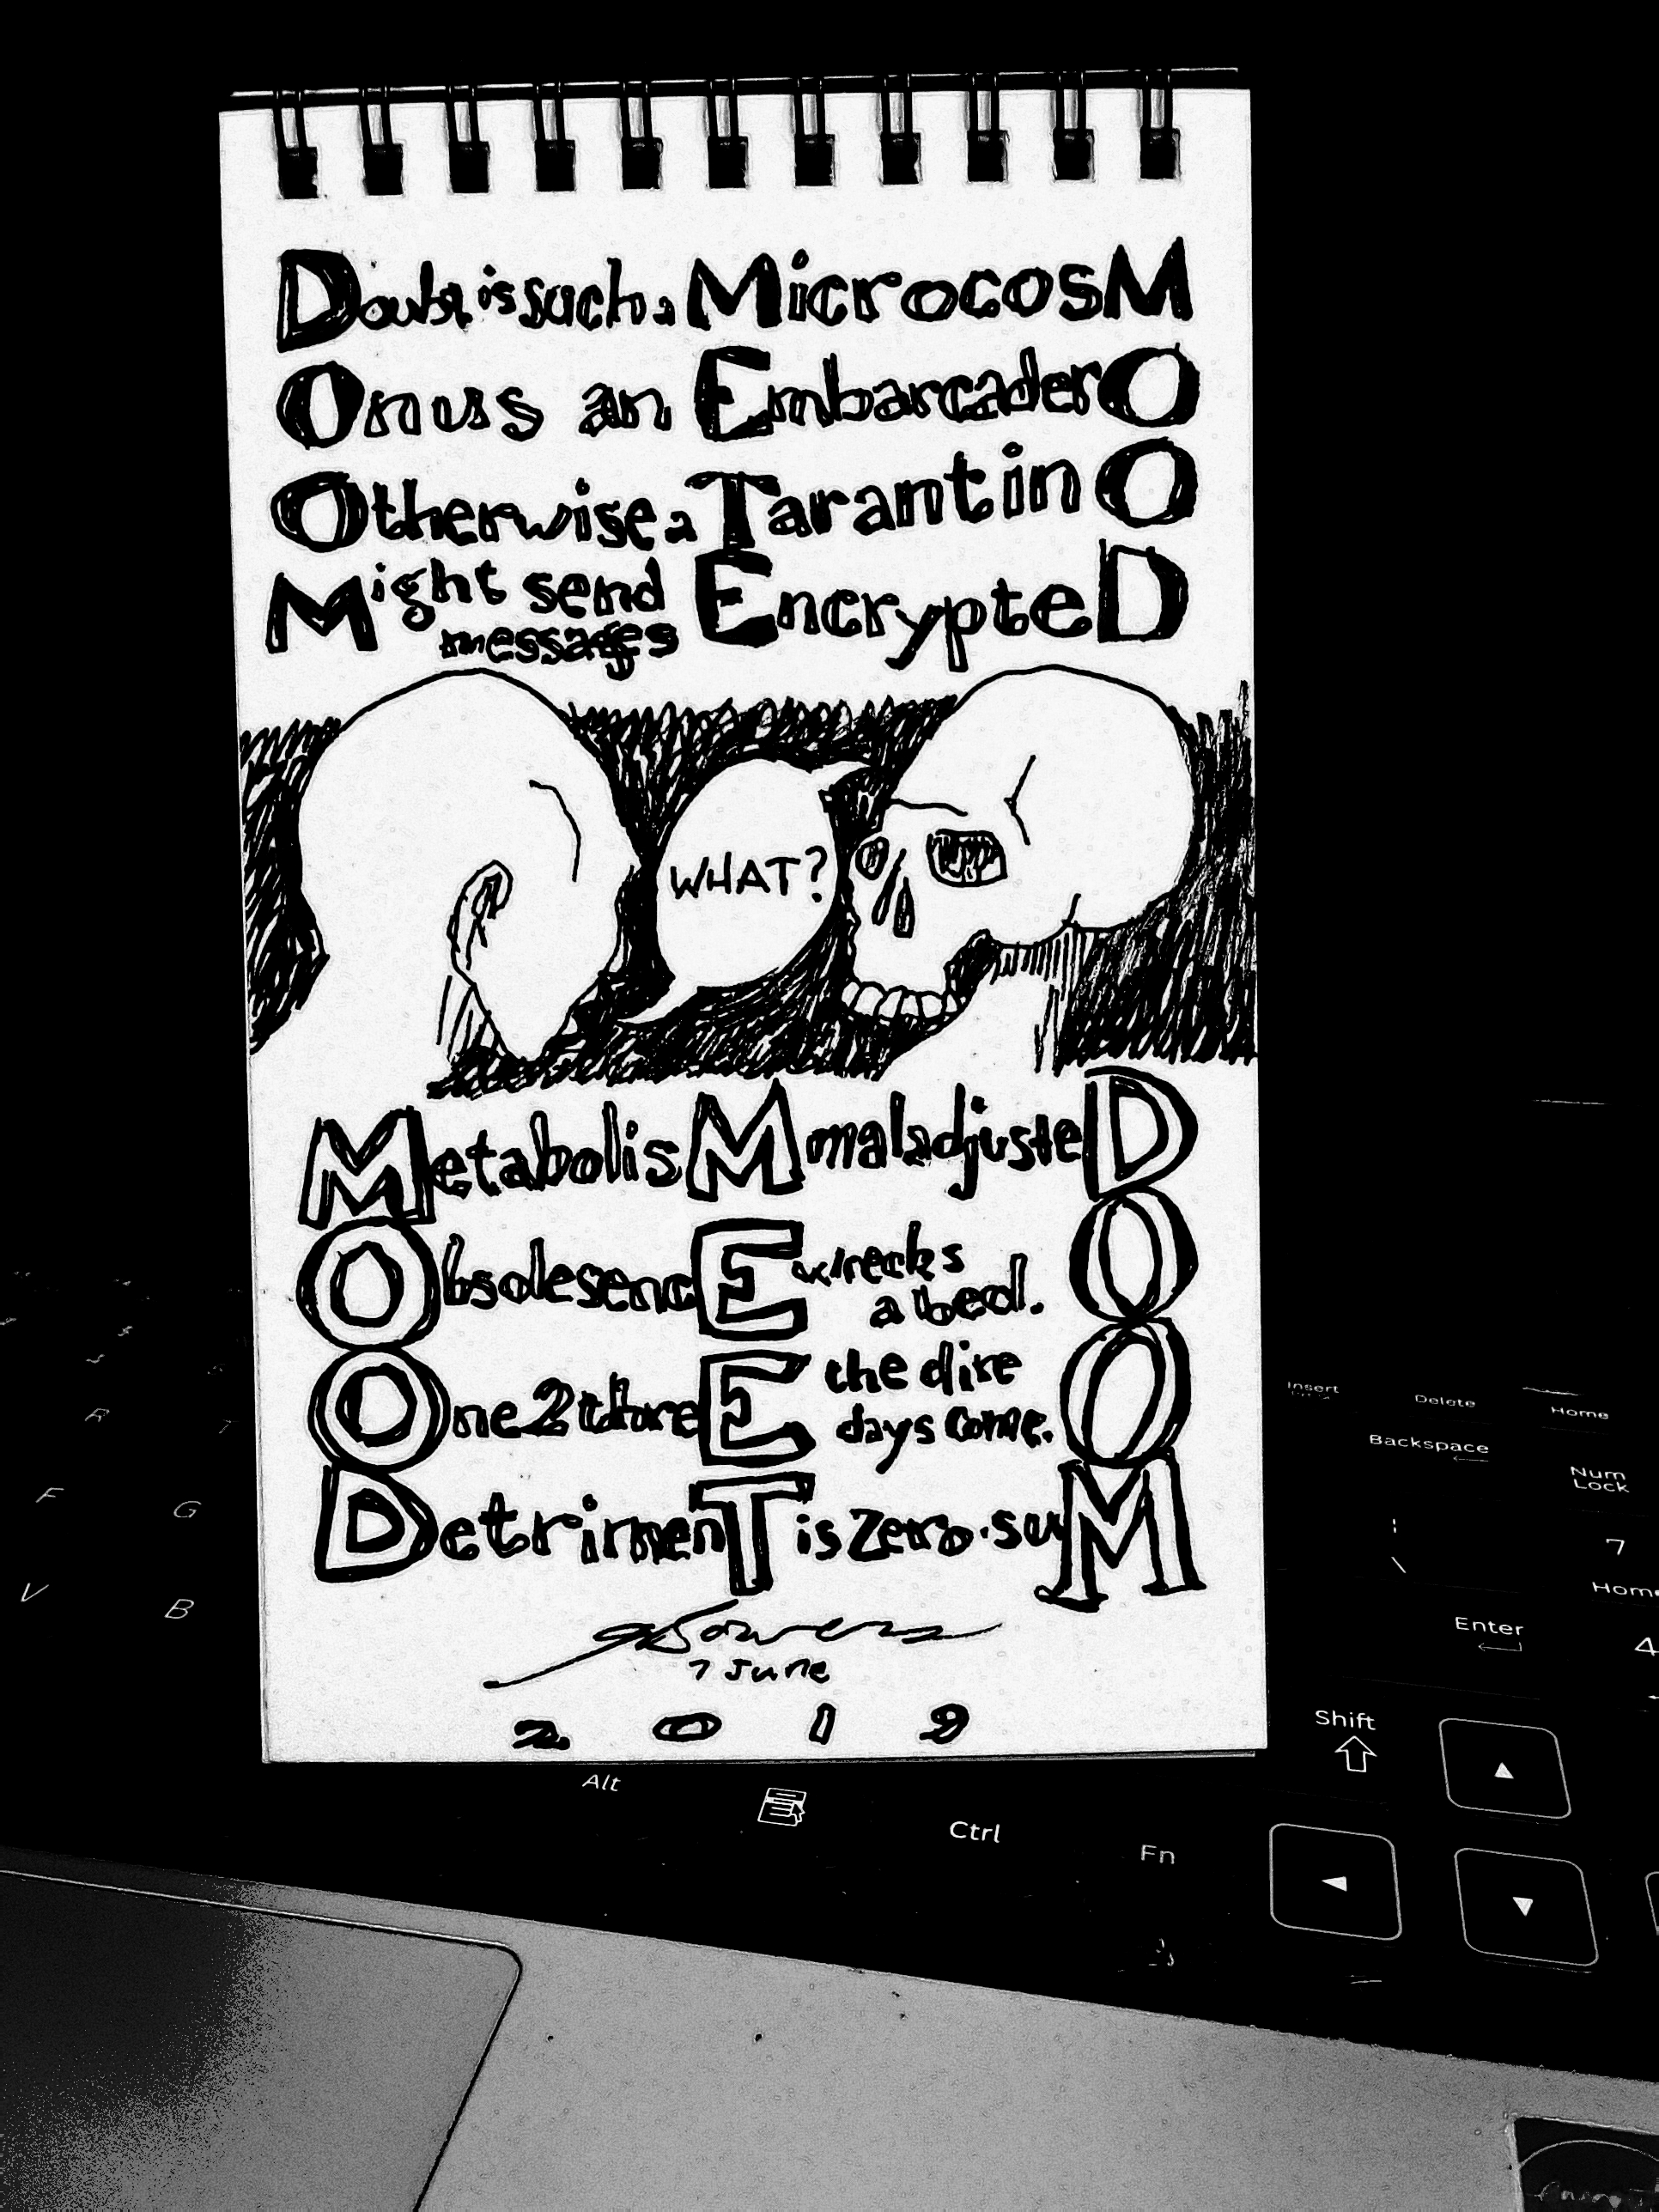 Doubt is such a MicrocosM
Onus an EmbarcaderO
Otherwise a TarantinO
Might send messages EncrypteD
WHAT?
MetabolisM maladjusteD
ObsolesencE wrecks a bed. O
One 2 three the dire days come. O
DetrimenT is Zero-suM
7 June
2019
Insert
Delete
Home
Backspace
Num Lock
R
T
F
G
7
Home
V
B
Enter
4
Shift
Alt
Ctrl
Fn